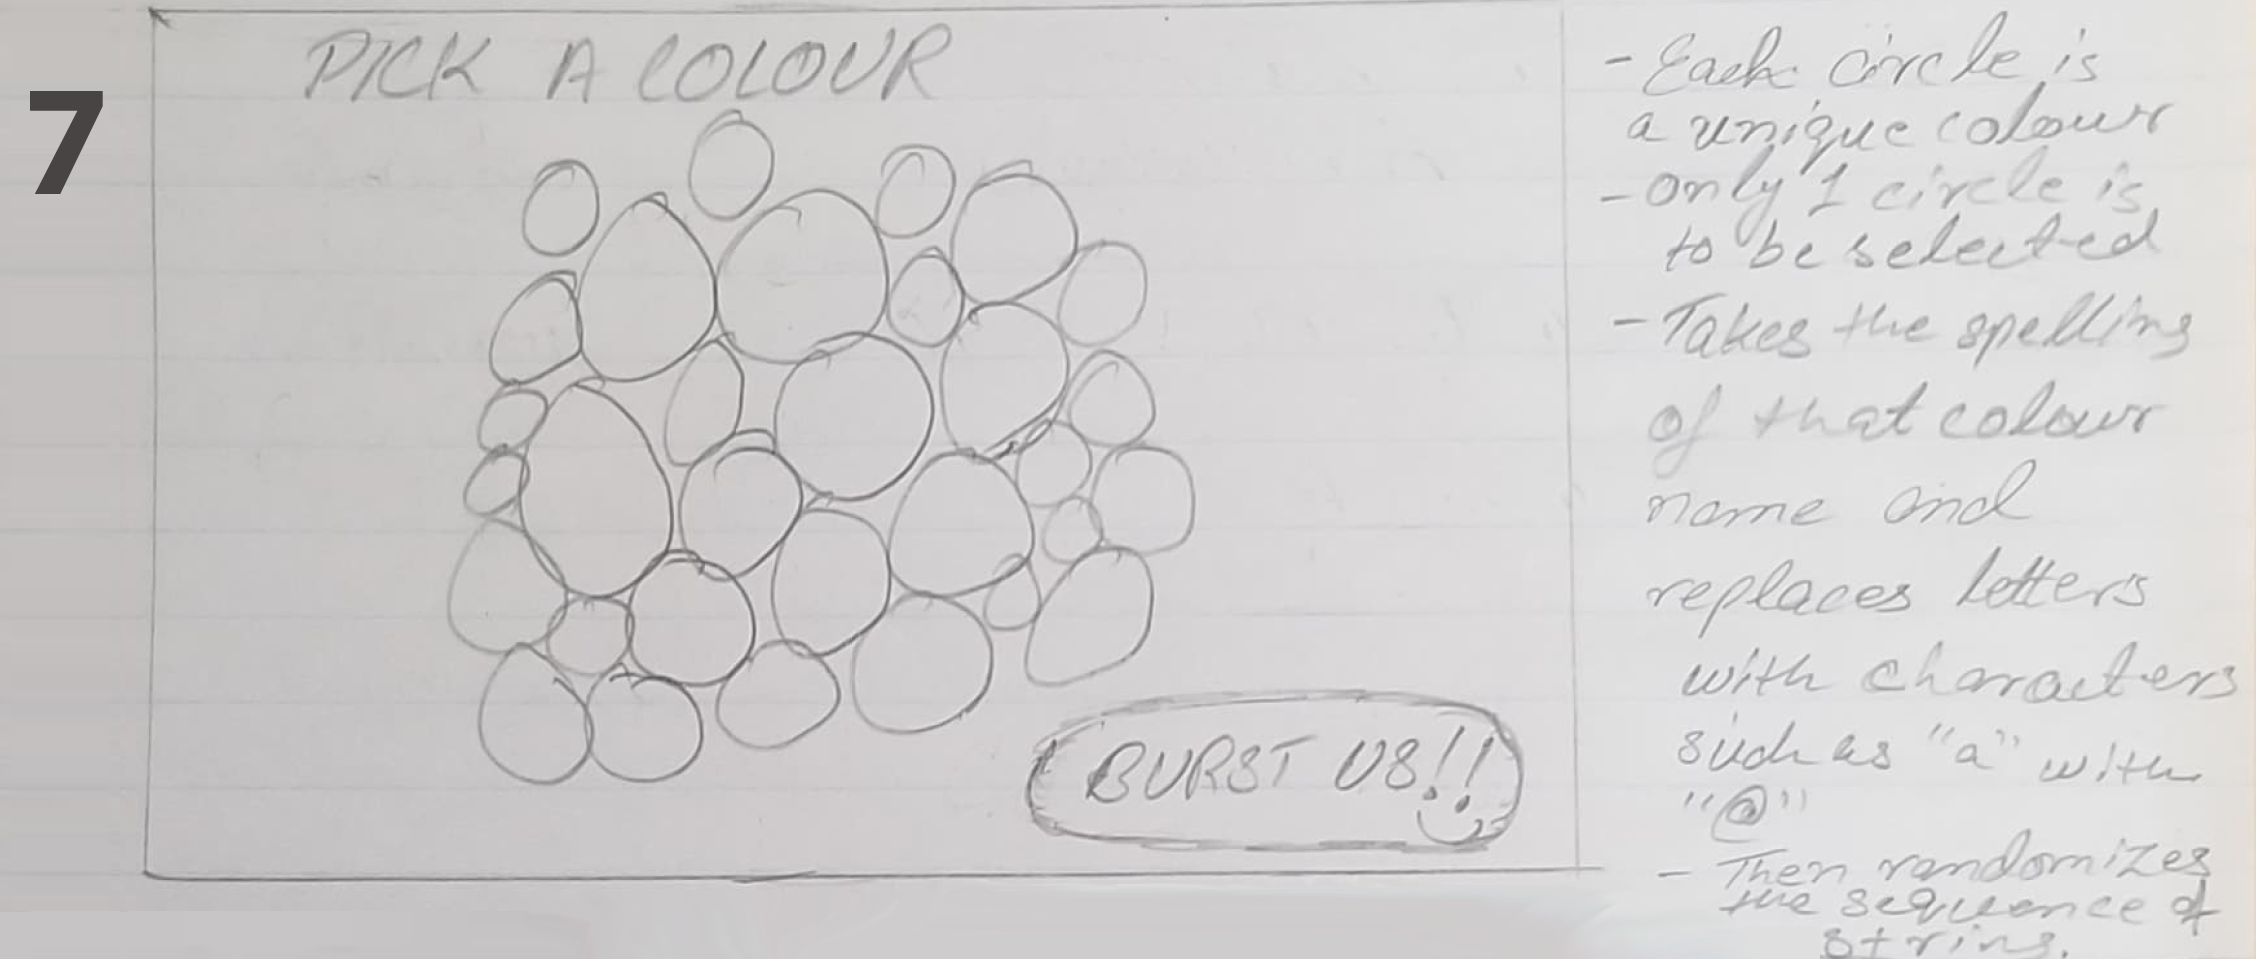 7
PICK A COLOUR
BURST US!!
- Each circle is
a unique colour
- Only 1 circle is
to be selected
- Takes the spelling
of that colour
name and
replaces letters
with characters
such as "a" with
"@"
- Then randomizes
the sequence of
string.